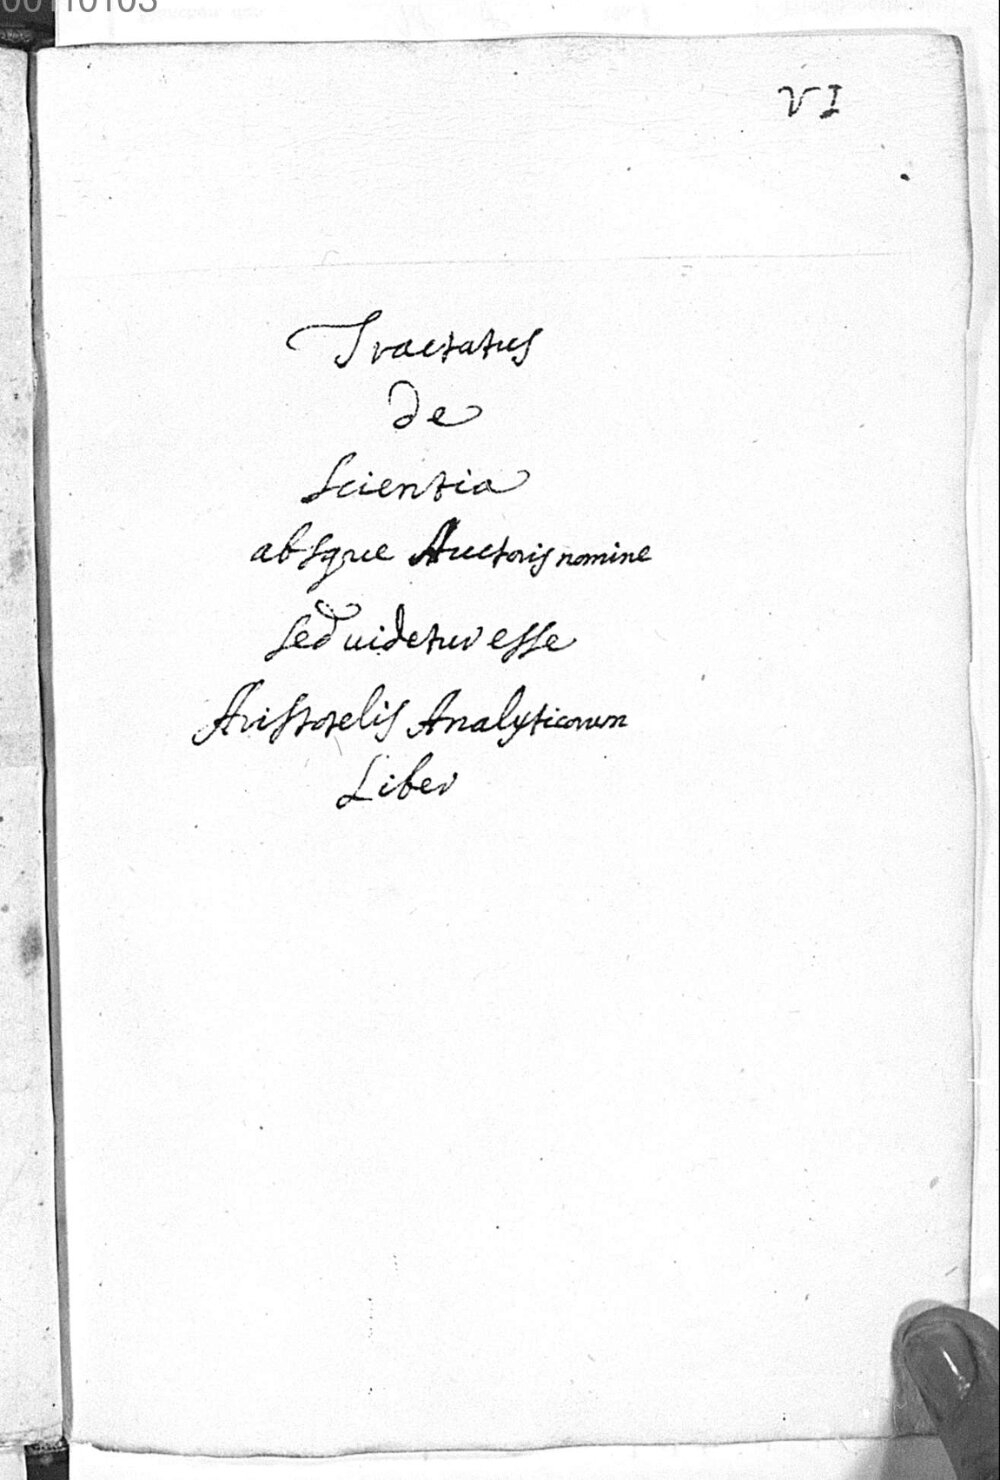 00110103
VI
Tractatus
de
Scientia
absque Auctoris nomine
sed uidetur esse
Aristotelis Analyticorum
Liber